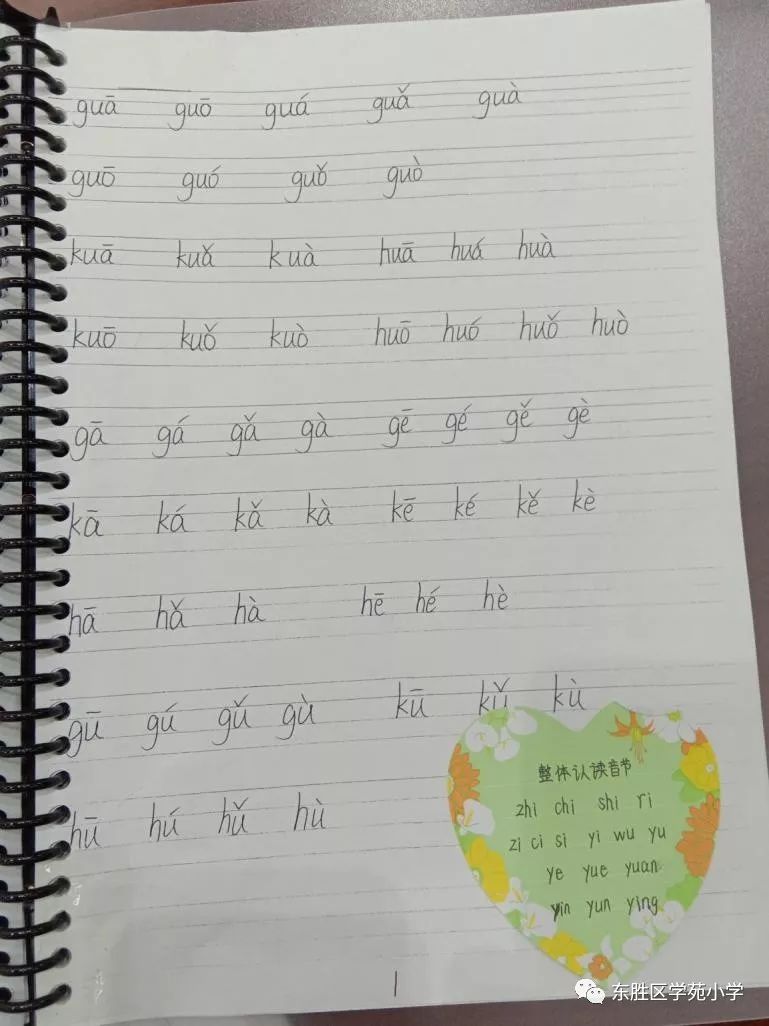 guā guō guá guǎ guà
guō guó guǒ guò
kuā kuǎ kuà huā huá huà
kuō kuǒ kuò huō huó huǒ huò
gā gá gǎ gà gē gé gě gè
kā ká kǎ kà kē ké kě kè
hā hǎ hà hē hé hè
gū gú gǔ gù kū kǔ kù
hū hú hǔ hù
整体认读音节
zhi chi shi ri
zi ci si yi wu yu
ye yue yuan
yin yun ying
1
东胜区学苑小学